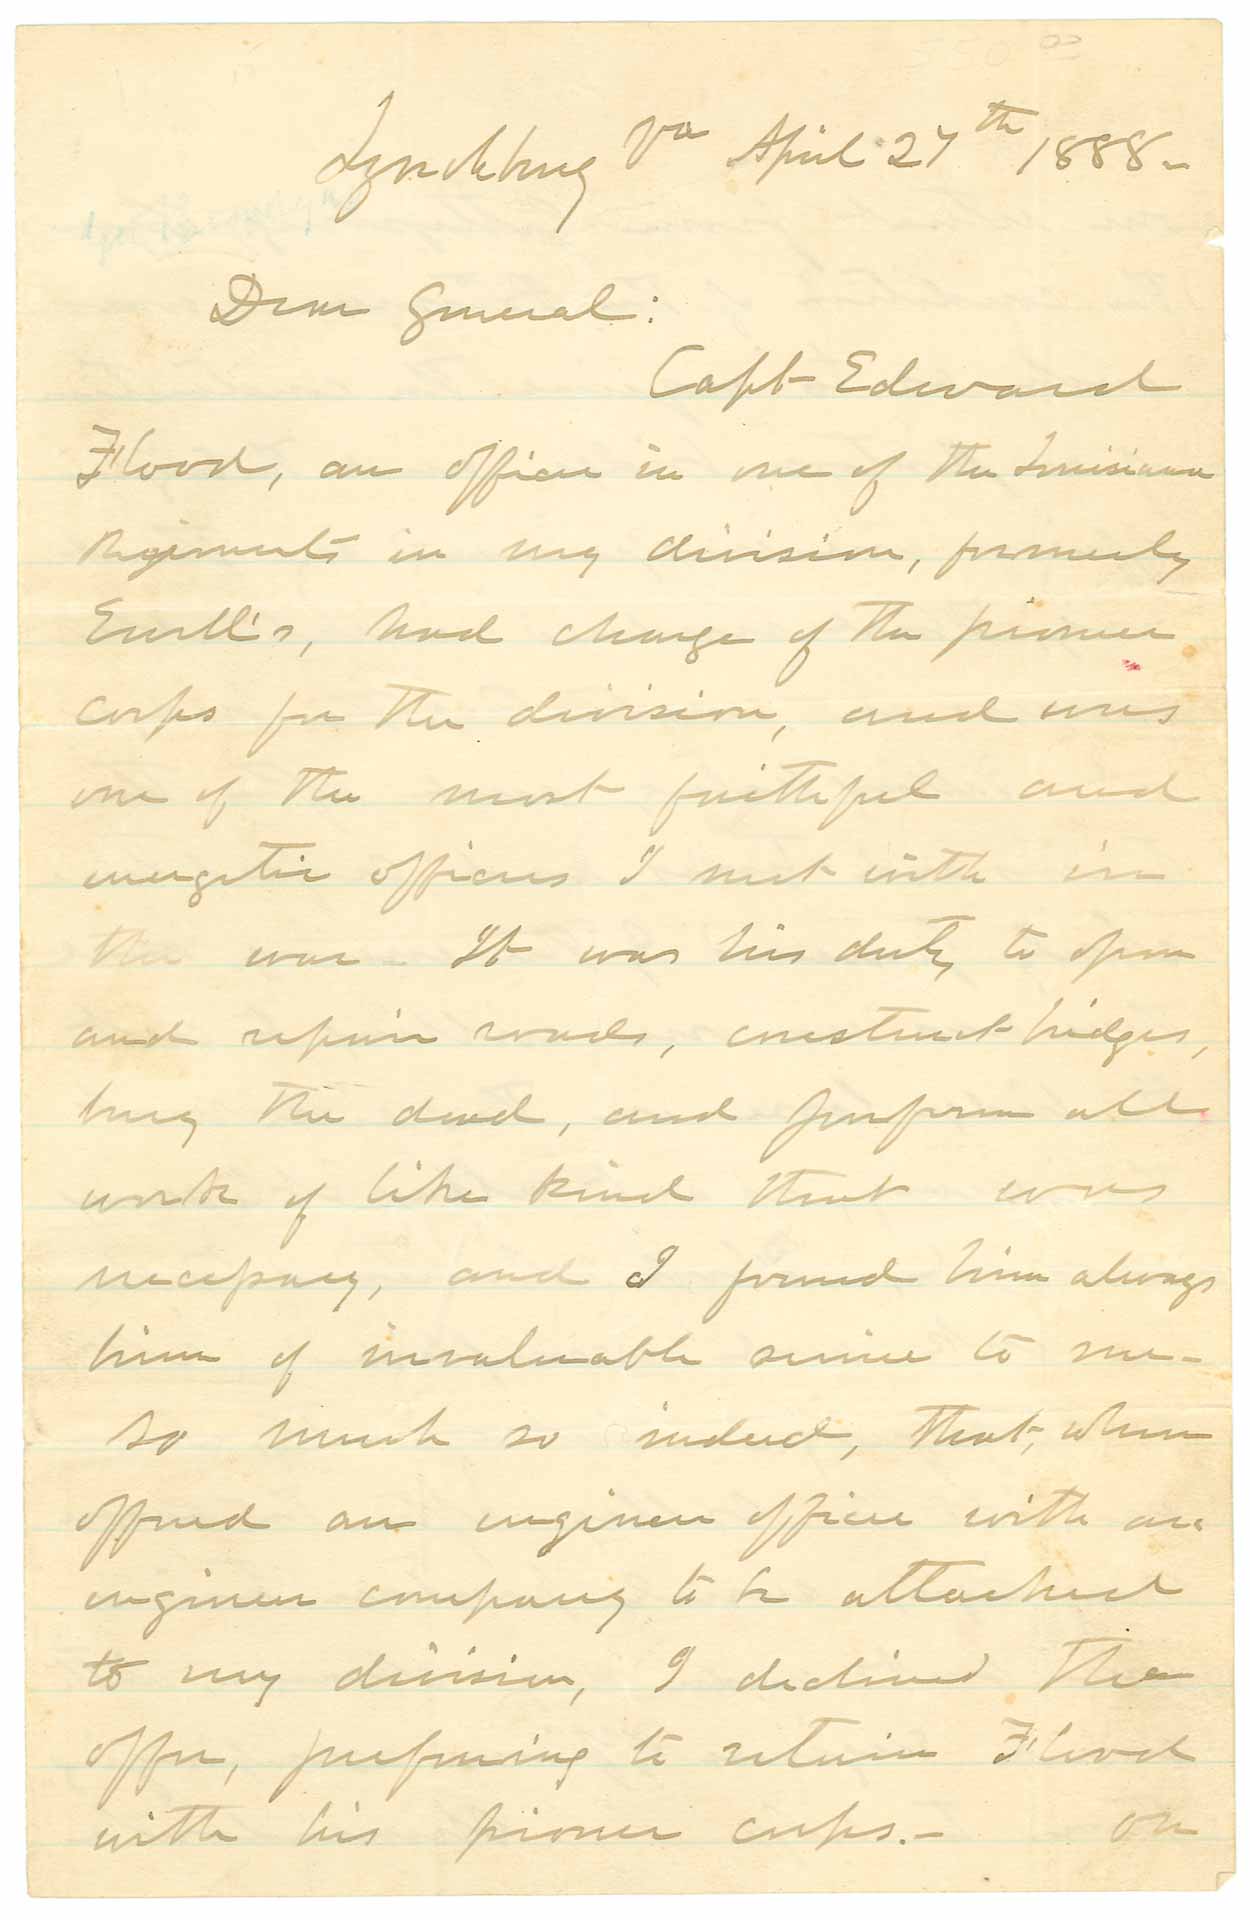 Lynchburg Va April 27th 1888-
Dear General:
Capt Edward
Flood, an officer in one of the Louisiana
Regiments in my division, formerly
Ewell's, had charge of the pioneer
corps for the division, and was
one of the most faithful and
energetic officers I met with in
the war - It was his duty to open
and repair roads, construct bridges,
bury the dead, and perform all
work of like kind that was
necessary, and I found him always
him of invaluable service to me-
so much so indeed, that, when
offered an engineer officer with an
engineer company to be attached
to my division, I declined the
offer, preferring to retain Flood
with his pioneer corps.- On